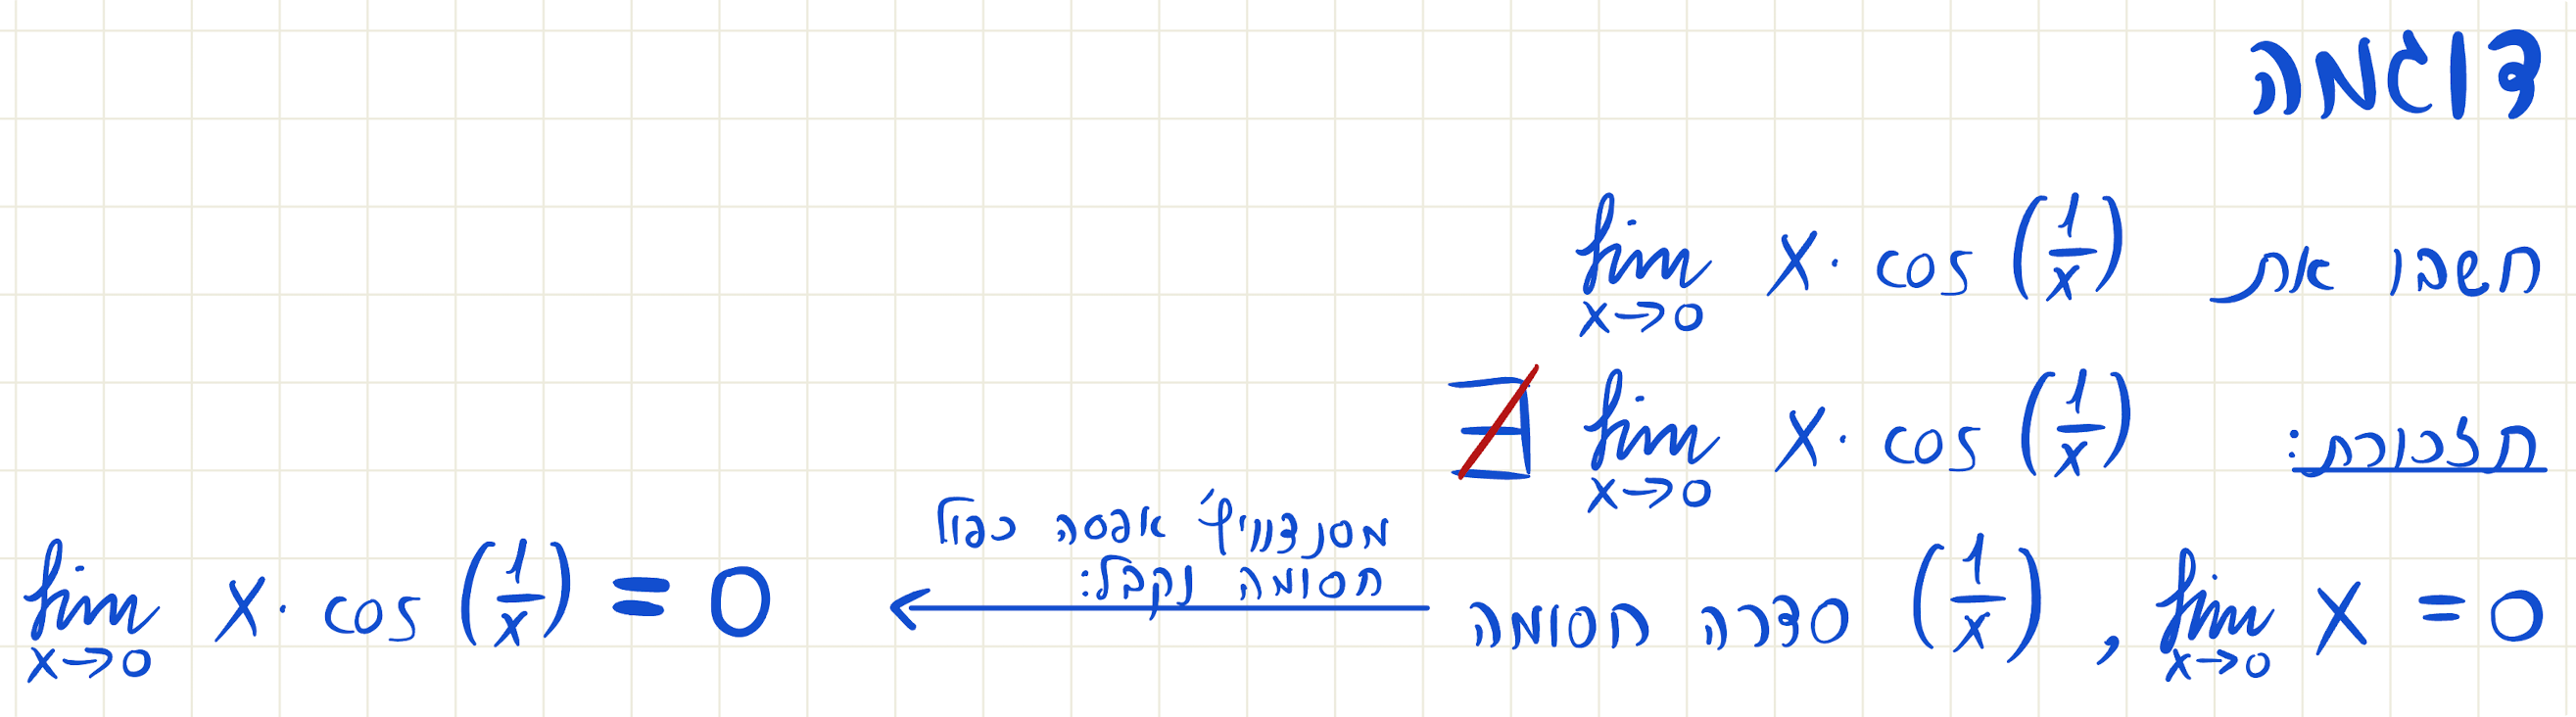 דוגמה
חשבו את lim x→0 x · cos (1/x)
תזכורת: ∄ lim x→0 x · cos (1/x)
lim x→0 x = 0 , (1/x) סדרה חסומה ← מסנדוויץ' אפסה כפול חסומה נקבל: lim x→0 x · cos (1/x) = 0